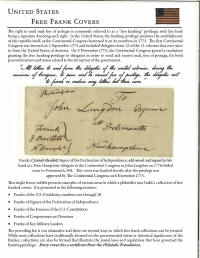 UNITED STATES
FREE FRANK COVERS
The right to send mail free of postage is commonly referred to as a "free franking" privilege, with the frank
being a signature denoting such right. In the United States, the franking privilege predates the establishment
of the republic itself, as the Continental Congress bestowed it on its members in 1775. The first Continental
Congress was formed on 5 September 1774 and included delegates from 12 of 13 colonies that were later
to form the United States of America. On 8 November 1775, the Continental Congress passed a resolution
granting the free franking privilege to delegates in order to send and receive mail, free of postage, for both
personal matters and issues related to the formation of the government.
All letters to and from the delegates of the united colonies, during the
sessions of Congress, to pass and be carried free of postage, the delegates not
to frank or enclose any letters but their own.
John Langdon Esquire
Portsmouth
Frank
J Bartlett
Newhampshire
Franks of Josiah Bartlett, Signer of the Declaration of Independence, addressed and signed by his
hand as a New Hampshire delegate to the Continental Congress to John Langdon on 1776 folded
cover to Portsmouth, NH. This cover was franked shortly after the privilege was
approved by The Continental Congress on 8 November 1775.
This single frame exhibit presents examples of various areas in which a philatelist may build a collection of free
franked covers. It is presented in the following sections:
Franks of the U.S. Presidents, numbers one through 10
Franks of Signers of the Declaration of Independence
Franks of the Framers of the U.S. Constitution
Franks of Congressmen and Senators
Franks of Key Military Leaders
The preceding list is not exhaustive and there are myriad ways in which free frank collections can be formed.
While most collections have traditionally focused on the governmental status or historical significance of the
franker, collections can also be formed that illustrate the postal laws and regulations that have governed the
franking privilege. Every cover has a certificate from the Philatelic Foundation.